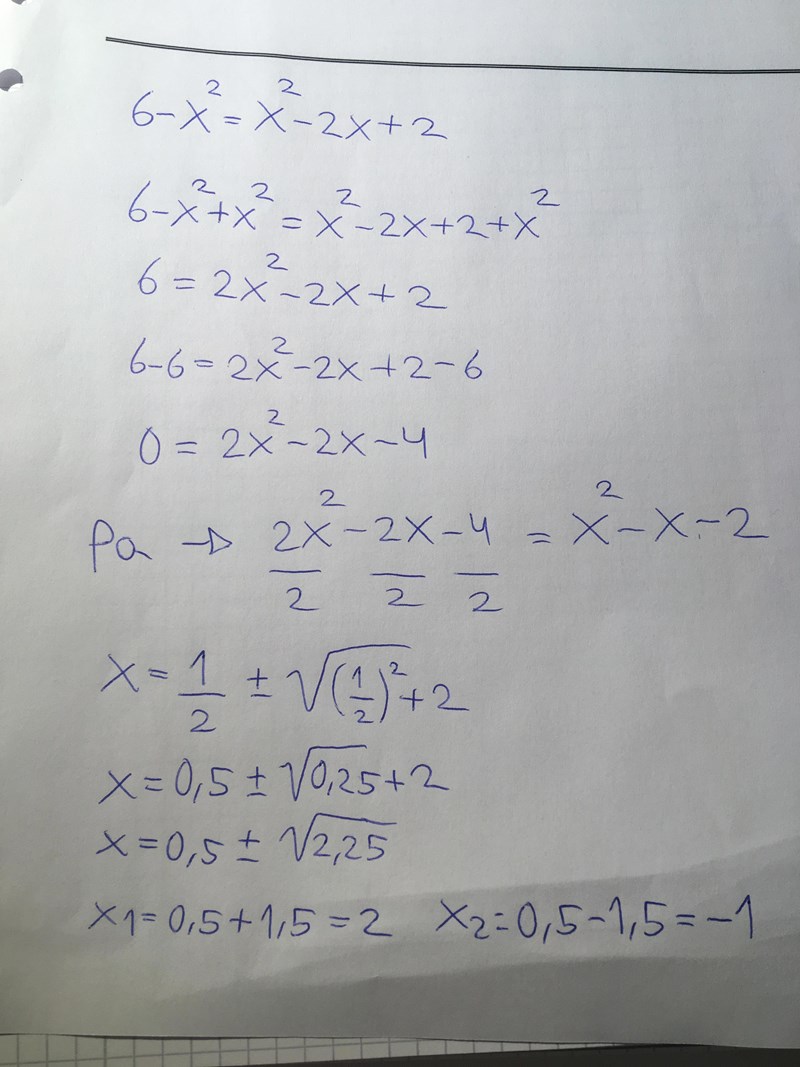 6-x²=x²-2x+2
6-x²+x²=x²-2x+2+x²
6=2x²-2x+2
6-6=2x²-2x+2-6
0=2x²-2x-4
Pa → 2x²/2 - 2x/2 - 4/2 = x²-x-2
x=1/2 ± √(1/2)²+2
x=0,5 ± √0,25+2
x=0,5 ± √2,25
x1=0,5+1,5=2 x2=0,5-1,5=-1